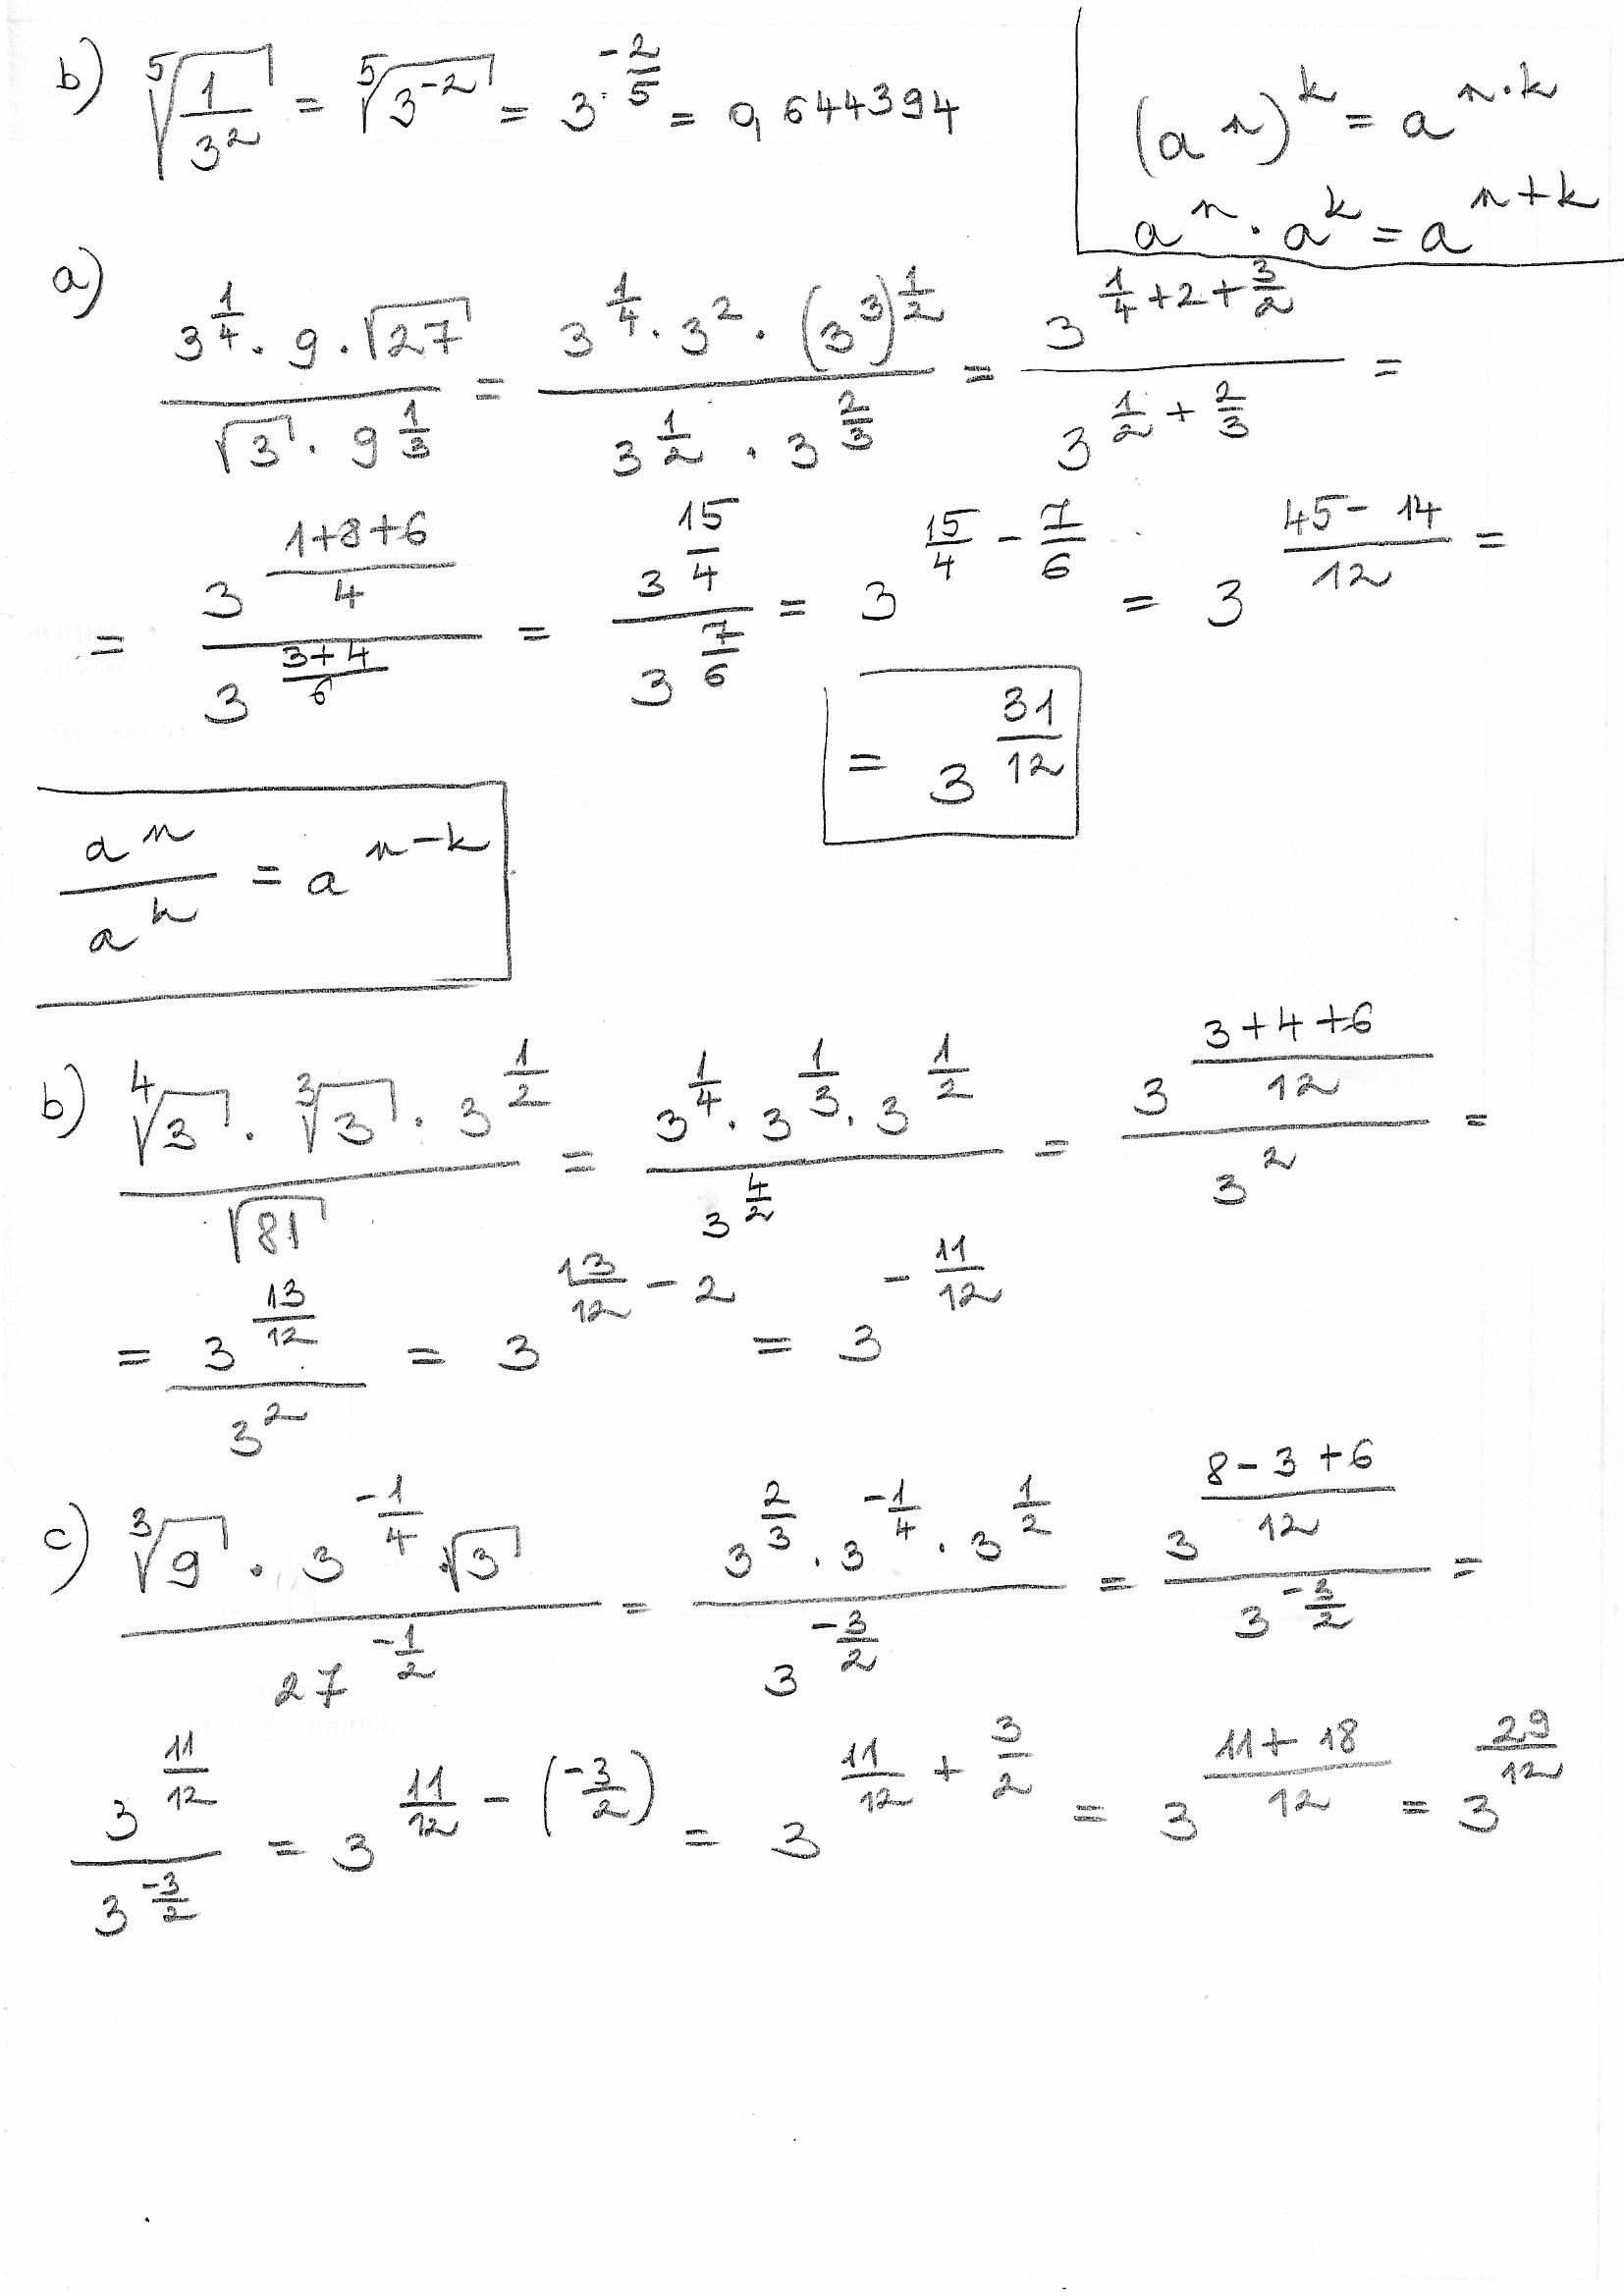 b) ⁵√(1/3²) = ⁵√(3⁻²) = 3^(-2/5) = 0,644394
(a^n)^k = a^(n·k)
a^n · a^k = a^(n+k)
a) (3^(1/4) · 9 · √27)/(√3 · 9^(1/3)) = (3^(1/4) · 3² · (3³)^(1/2))/(3^(1/2) · 3^(2/3)) = 3^(1/4+2+3/2)/3^(1/2+2/3) =
= 3^((1+8+6)/4)/3^((3+4)/6) = 3^(15/4)/3^(7/6) = 3^(15/4 - 7/6) = 3^((45-14)/12) =
= 3^(31/12)
a^n/a^k = a^(n-k)
b) (⁴√3 · ³√3 · 3^(1/2))/√81 = (3^(1/4) · 3^(1/3) · 3^(1/2))/3^(4/2) = 3^((3+4+6)/12)/3² =
= 3^(13/12)/3² = 3^(13/12 - 2) = 3^(-11/12)
c) (³√9 · 3^(-1/4) · √3)/27^(-1/2) = (3^(2/3) · 3^(-1/4) · 3^(1/2))/3^(-3/2) = 3^((8-3+6)/12)/3^(-3/2) =
3^(11/12)/3^(-3/2) = 3^(11/12 - (-3/2)) = 3^(11/12 + 3/2) = 3^((11+18)/12) = 3^(29/12)